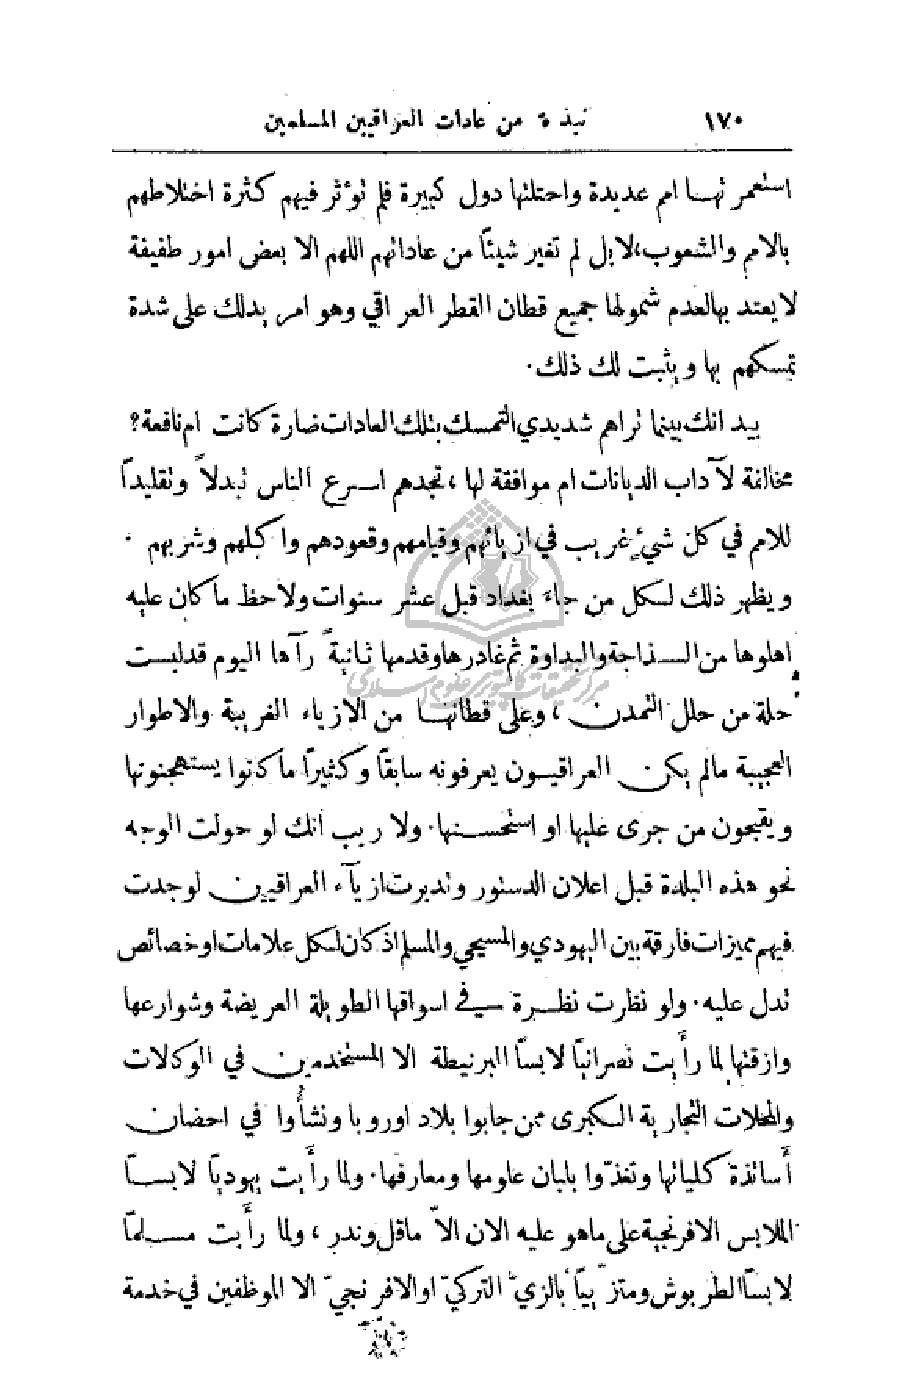 ١٧٠ نبذة من عادات العراقيين المسلمين
استعمرتها امم عديدة واحتلتها دول كبيرة فلم تؤثر فيهم كثرة اختلاطهم
بالامم والشعوب، لا بل لم تغير شيئًا من عاداتهم اللهم الا بعض امور طفيفة
لا يعتد بها لعدم شمولها جميع قطان القطر العراقي وهو امر يدلك على شدة
تمسكهم بها ويثبت لك ذلك.
بيد انك بينما تراهم شديدي التمسك بتلك العادات ضارة كانت ام نافعة؟
مخالفة لآداب الديانات ام موافقة لها، تجدهم اسرع الناس تبدلاً وتقليدًا
للامم في كل شيءٍ غريب في ازيائهم وقيامهم وقعودهم واكلهم وشربهم.
ويظهر ذلك لكل من جاءَ بغداد قبل عشر سنوات ولاحظ ما كان عليه
اهلوها من السذاجة والبداوة ثم غادرها وقدمها ثانيةً رآها اليوم قد لبست
حلة من حلل التمدن، وعلى قطانها من الازياء الغريبة والاطوار
العجيبة ما لم يكن العراقيون يعرفونه سابقًا وكثيرًا ما كانوا يستهجنونها
ويقبحون من جرى عليها او استحسنها. ولا ريب انك لو حولت الوجه
نحو هذه البلدة قبل اعلان الدستور وتدبرت ازيآء العراقيين لوجدت
فيهم مميزات فارقة بين اليهودي والمسيحي والمسلم اذ كان لكل علامات او خصائص
تدل عليه. ولو نظرت نظرة في اسواقها الطويلة العريضة وشوارعها
وازقتها لما رأيت نصرانيًا لابسًا البرنيطة الا المستخدمين في الوكالات
والمحلات التجارية الكبرى ممن جابوا بلاد اوروبا ونشأُوا في احضان
أساتذة كلياتها وتغذّوا بلبان علومها ومعارفها. ولما رأيت يهوديًا لابسًا
الملابس الافرنجية على ما هو عليه الان الاّ ما قل وندر، ولما رأيت مسلمًا
لابسًا الطربوش ومتزيّيًا بالزيّ التركيّ او الافرنجيّ الا الموظفين في خدمة
مركز تحقيقات كامپيوتري علوم اسلامي